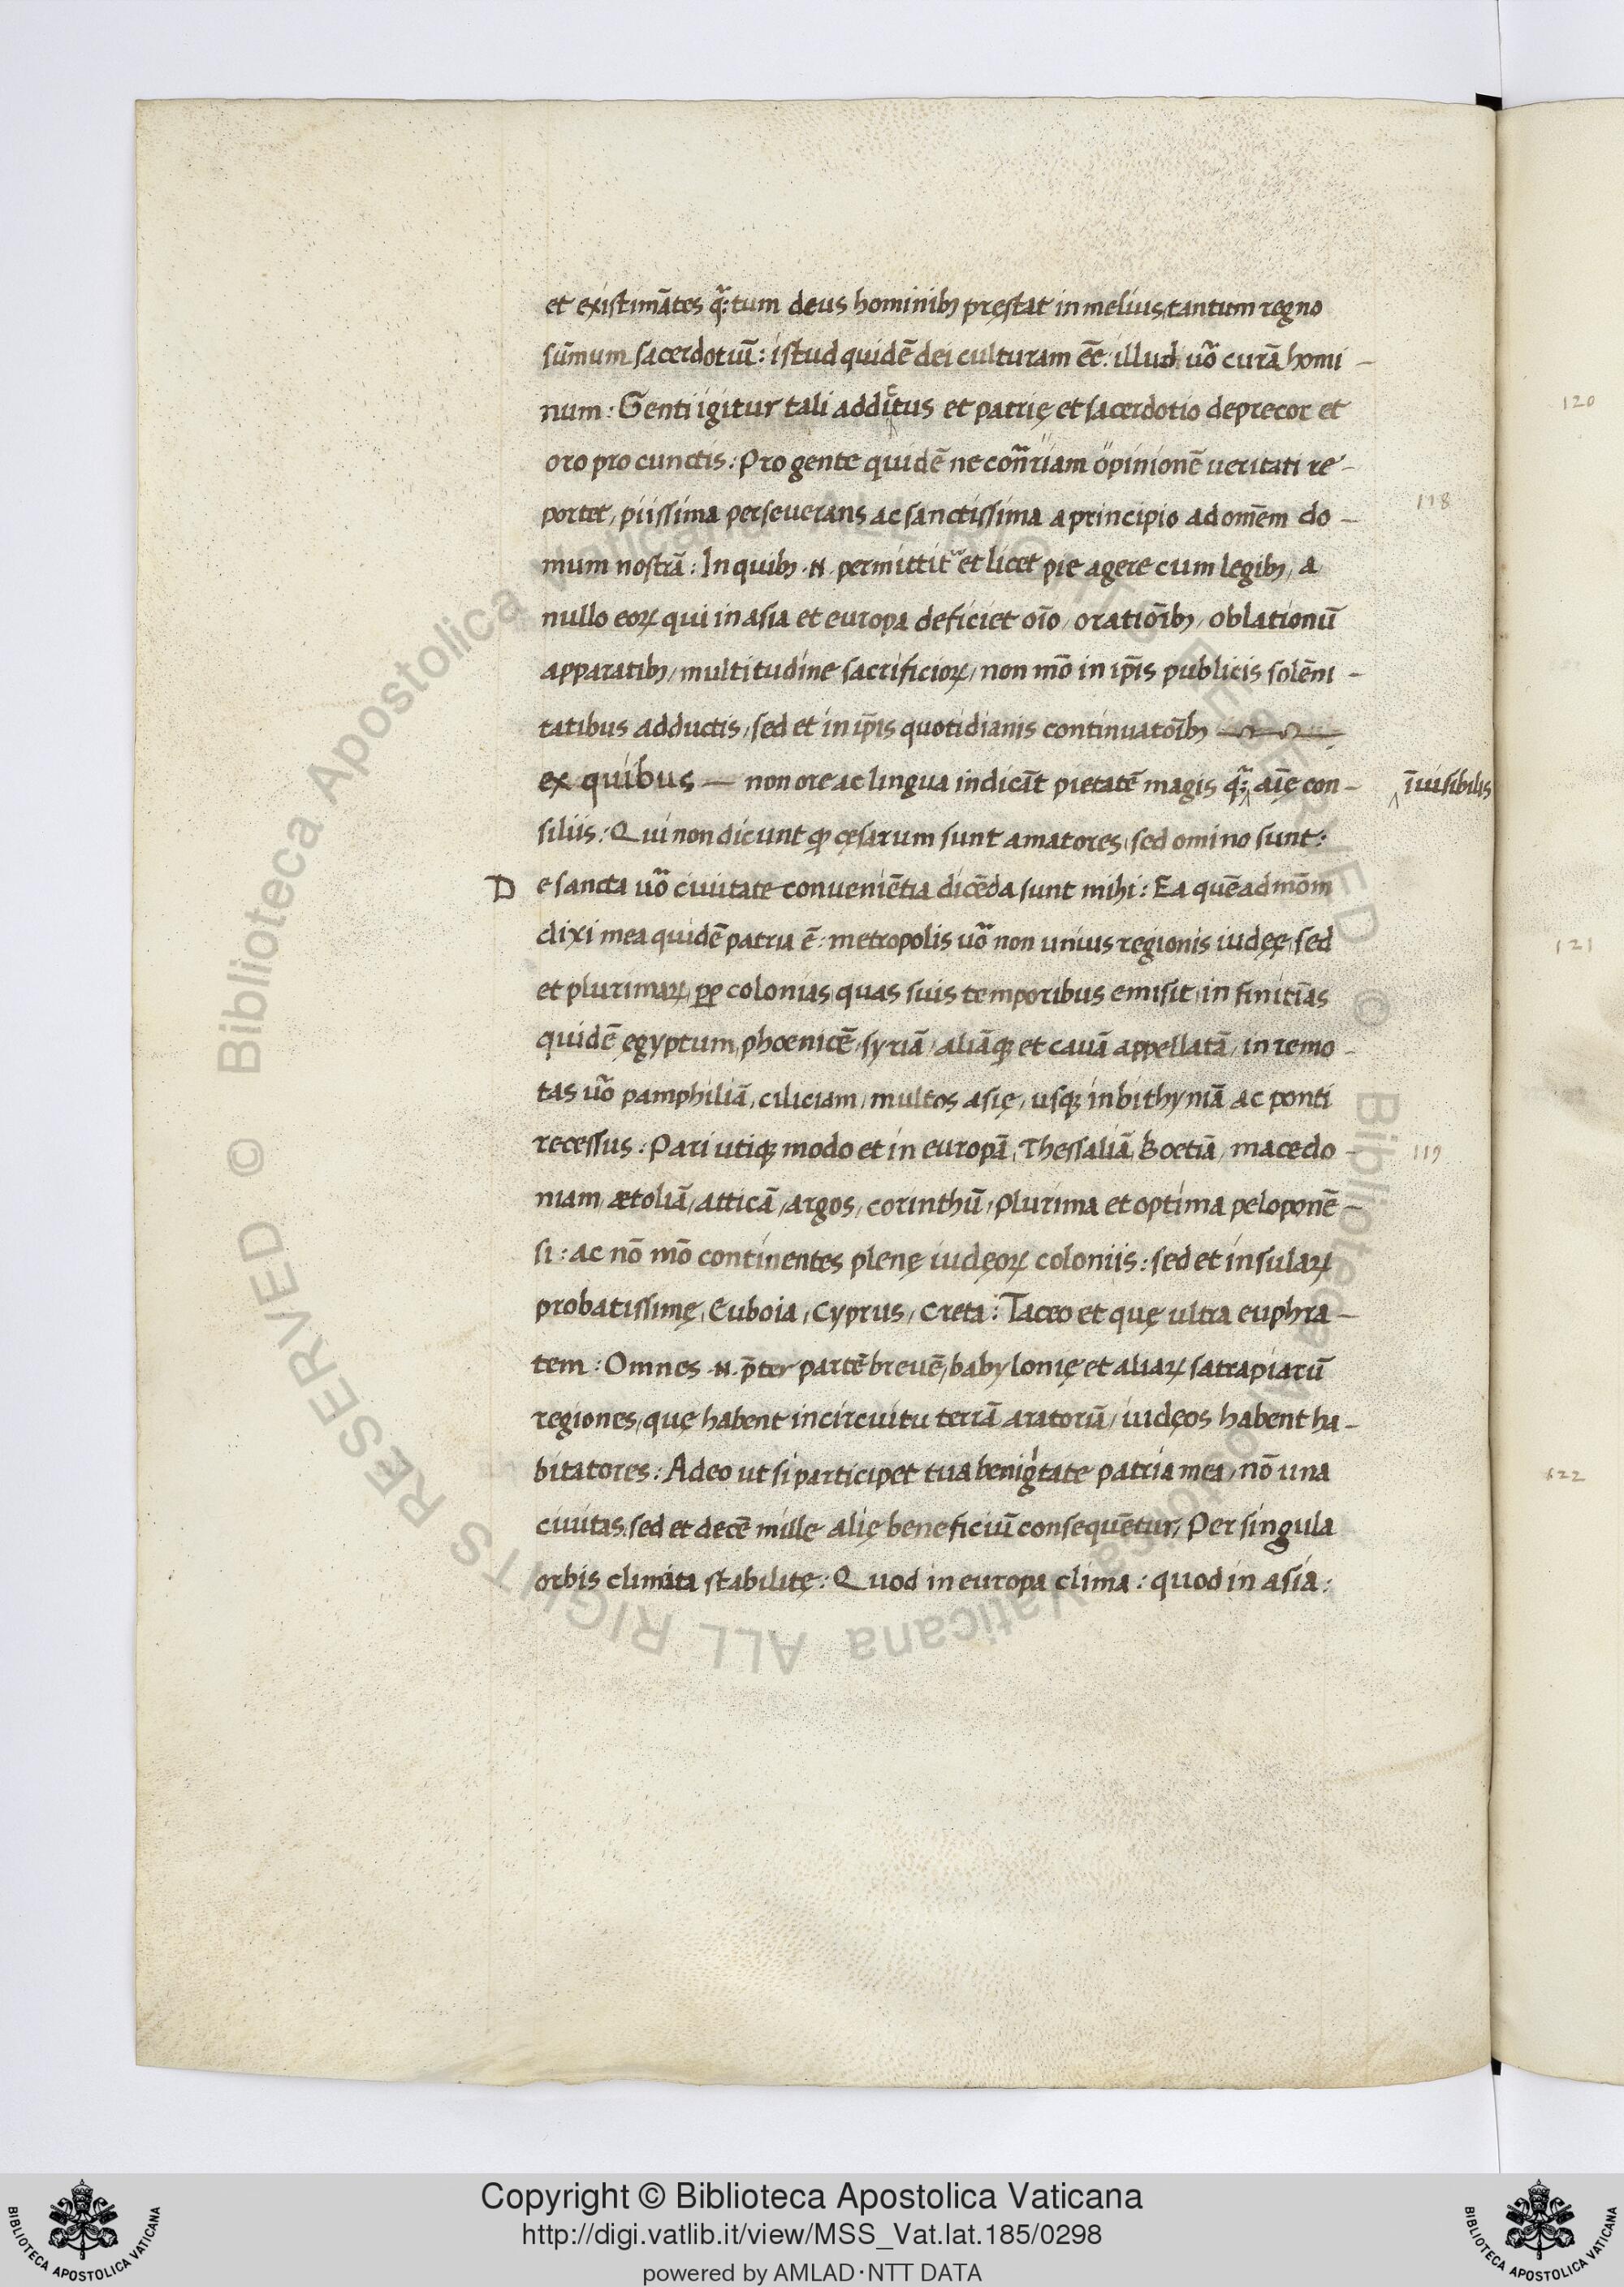 et existimātes q̄:tum deus hominibꝫ pręstat in melius, tantum regno
sūmum sacerdotiū: istud quidē dei culturam eē: illud uo᷑ curā homi-
num: Genti igitur tali addictus et patrię et sacerdotio deprecor et
oro pro cunctis: Pro gente quidē ne contrariam opinionē ueritati re-
portet, piissima perseuerans ac sanctissima a principio ad omēm do-
mum nostrā: In quibꝫ .N. permittit᷑ et licet pie agere cum legibꝫ, a
nullo eoꝝ qui in asia et europa deficiet oīo, oratiōibꝫ, oblationū
apparatibꝫ, multitudine sacrificioꝝ, non mō in ip̄is publicis solēni-
tatibus adductis, sed et in ip̄is quotidianis continuatōibꝫ
ex quibus — non ore ac lingua indicāt pietatē magis q̄: aīę con- īuisibilis
siliis: Qui non dicunt qp cęsarum sunt amatores, sed omino sunt:
De sancta uo᷑ ciuitate conueniētia dicēda sunt mihi: Ea quēadmōm
dixi mea quidē patria ē: metropolis uo᷑ non unius regionis iudęę, sed
et plurimaꝝ, ꝓp colonias, quas suis temporibus emisit, in finitīas
quidē ęgyptum, phoenicē, syriā, aliāqꝫ et cauā appellatā, in remo-
tas uo᷑ pamphiliā, ciliciam, multos asię, usqꝫ in bithyniā ac ponti
recessus: Pari utiqꝫ modo et in europā, Thessaliā, Boetiā, macedo-
niam, ætoliā, atticā, argos, corinthū, plurima et optima peloponē-
si: ac nō mō continentes plenę iudęoꝝ coloniis: sed et insulaꝝ
probatissimę, Euboia, Cyprus, Creta: Taceo et quę ultra euphra-
tem: Omnes .N. p̄ter partē breuē, babylonię et aliaꝝ satrapiarū
regiones, quę habent in circuitu terrā aratoriā, iudęos habent ha-
bitatores: Adeo ut si participet tua benigītate patria mea, nō una
ciuitas, sed et decē mille alię beneficiū consequētur, Per singula
orbis climata stabilitę: Quod in europa clima: quod in asia:
118
119
120
121
122
Copyright © Biblioteca Apostolica Vaticana
http://digi.vatlib.it/view/MSS_Vat.lat.185/0298
powered by AMLAD·NTT DATA
BIBLIOTECA APOSTOLICA VATICANA
BIBLIOTECA APOSTOLICA VATICANA
© Biblioteca Apostolica Vaticana ALL RIGHTS RESERVED
© Biblioteca Apostolica Vaticana ALL RIGHTS RESERVED